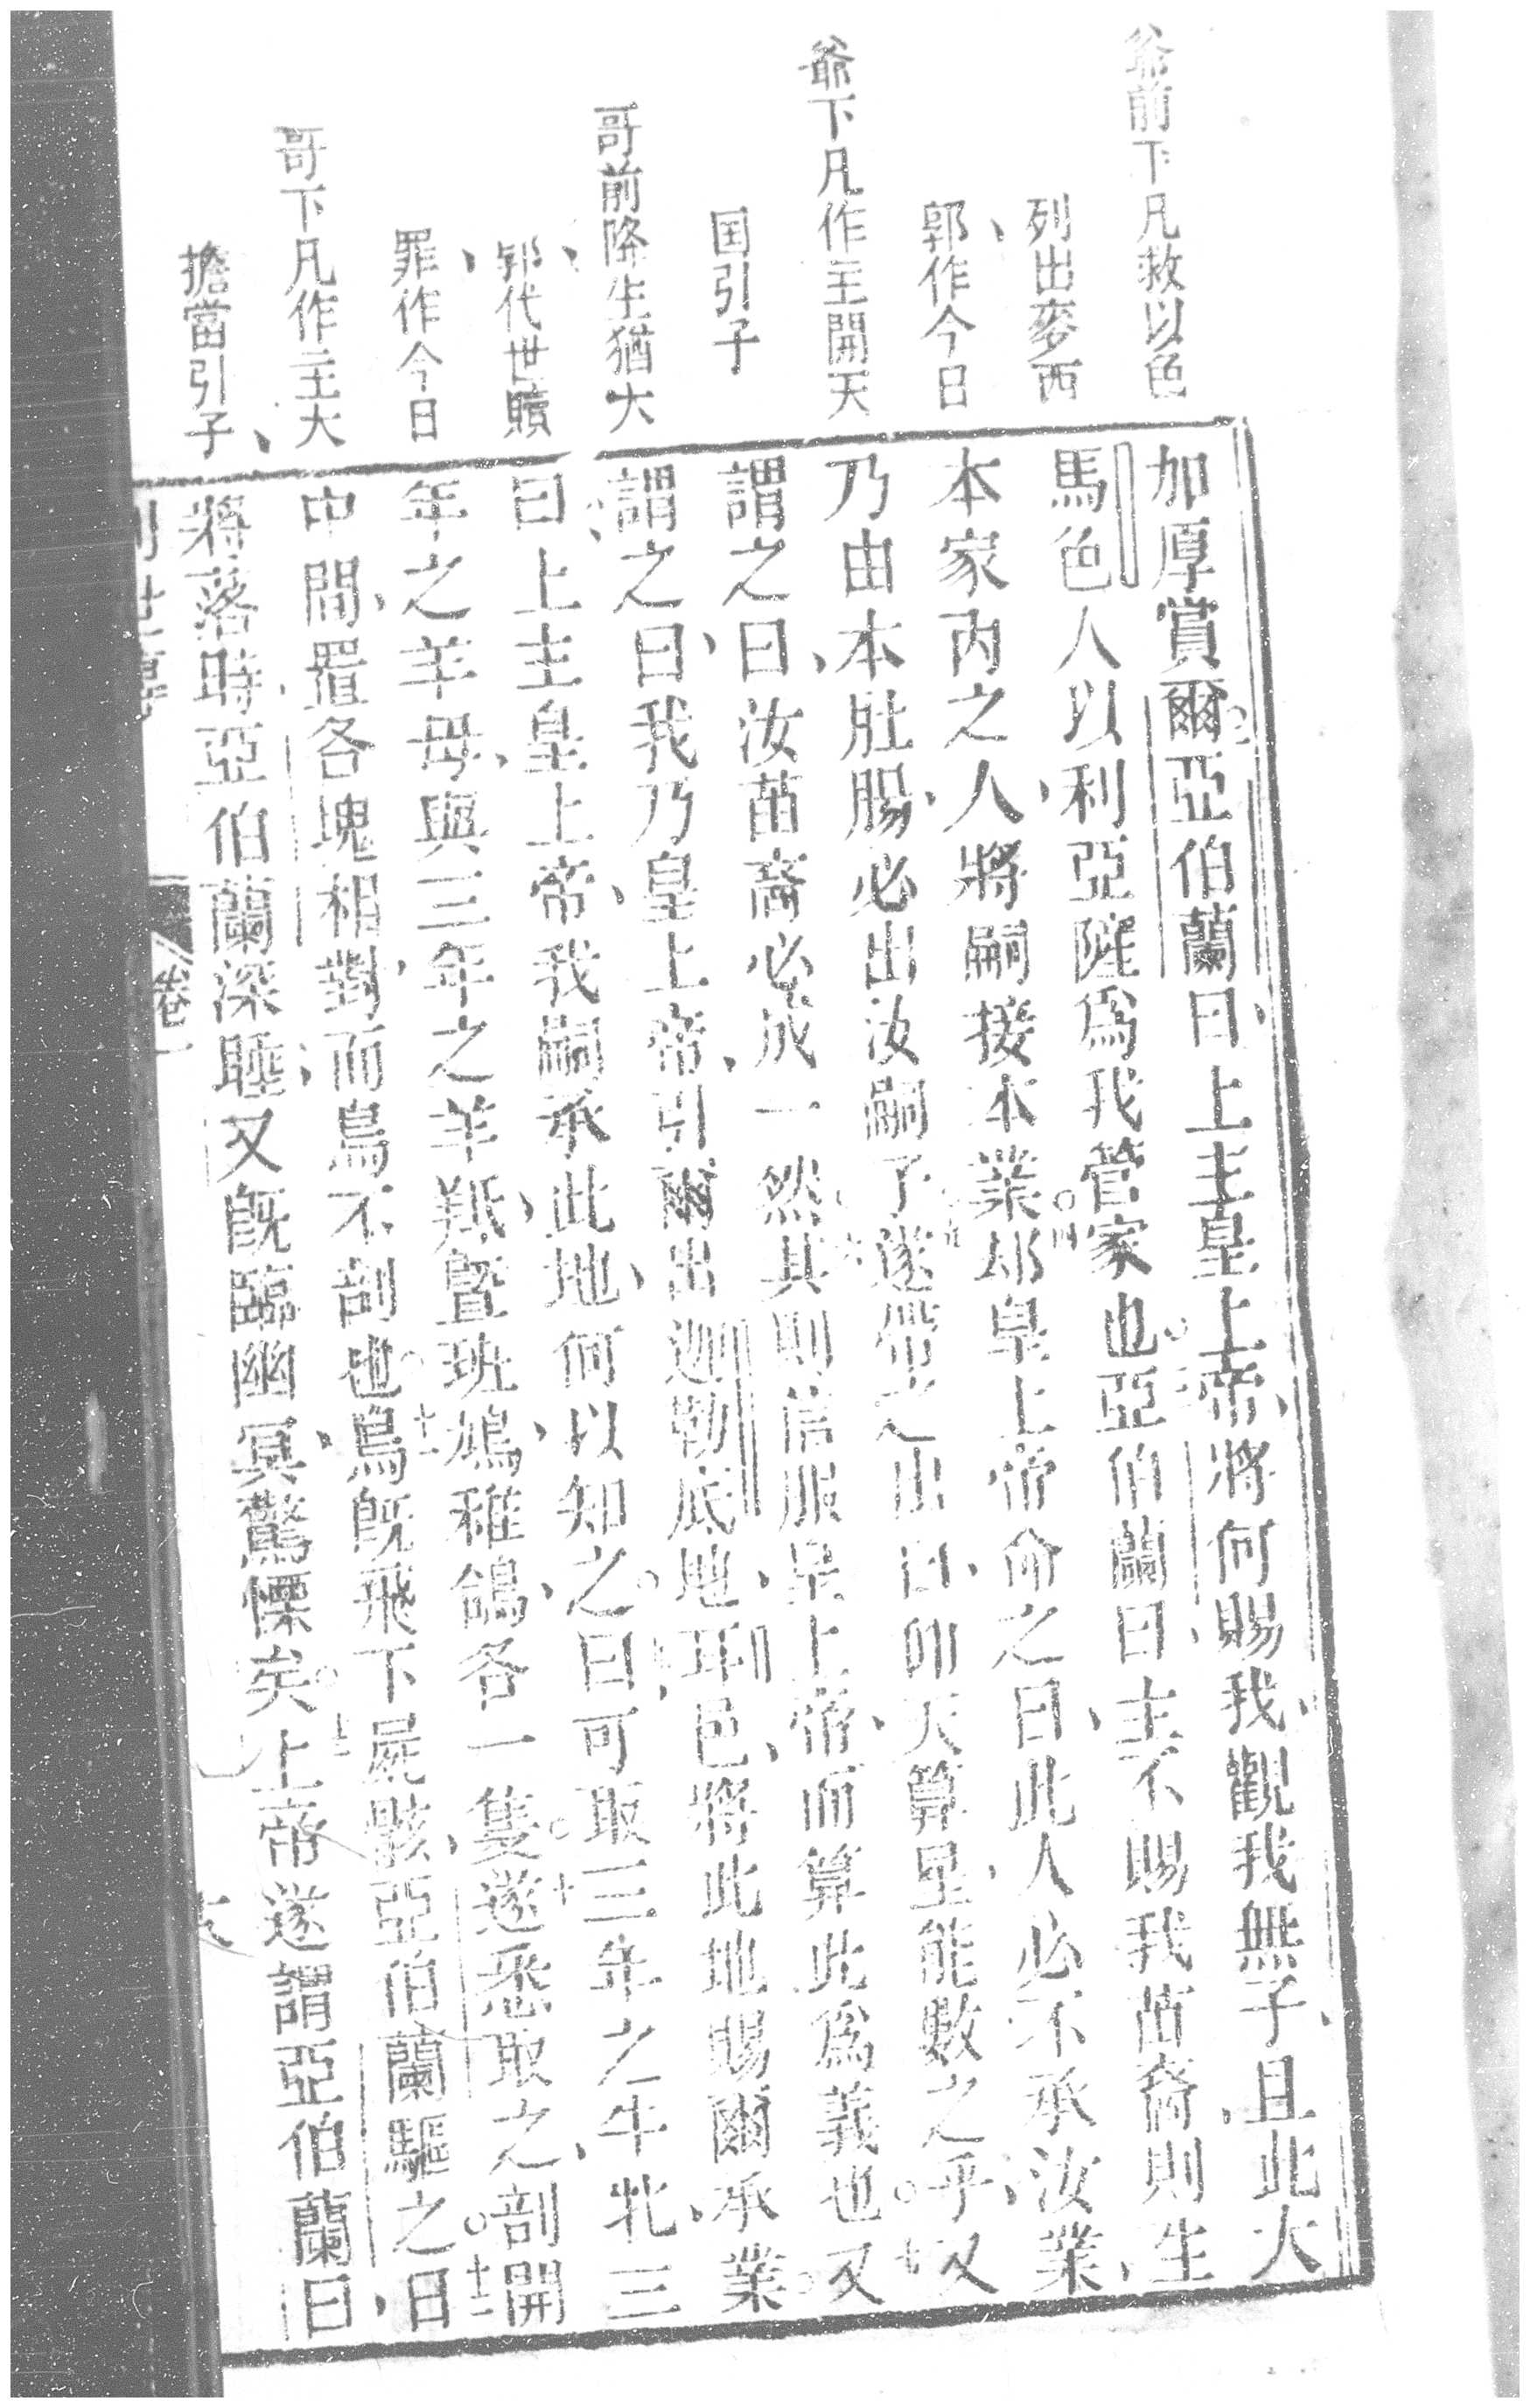 爺前下凡救以色
列出麥西
郭作今日
爺下凡作主開天
国引子
哥前降生猶大
郭代世贖
罪作今日
哥下凡作主大
擔當引子
加厚賞爾。二亞伯蘭曰、上主皇上帝、將何賜我、觀我無子、且此大
馬色人以利亞薩爲我管家也。三亞伯蘭曰、主不賜我苗裔、則生
本家內之人、將嗣接本業。四郕皇上帝命之曰、此人必不承汝業、
乃由本肚腸、必出汝嗣了。五遂帶之出曰、仰天算星、能數之乎、又
謂之曰、汝苗裔必成一然。六其則信服皇上帝、而算此爲義也。七又
謂之曰、我乃皇上帝、引爾出迦勒底地、耳邑、將此地賜爾、承業。
曰、上主皇上帝、我嗣承此地、何以知之。九曰、可取三年之牛牝、三
年之羊母、與三年之羊羝、暨班鳩、稚鴿、各一隻。十遂悉取之、剖開
中間、置各塊、相對、而鳥不剖也。十一鳥旣飛下屍骸、亞伯蘭驅之。十二日
將落時、亞伯蘭深睡、又旣臨幽冥、驚慄矣。十三上帝遂謂亞伯蘭曰、
卷一